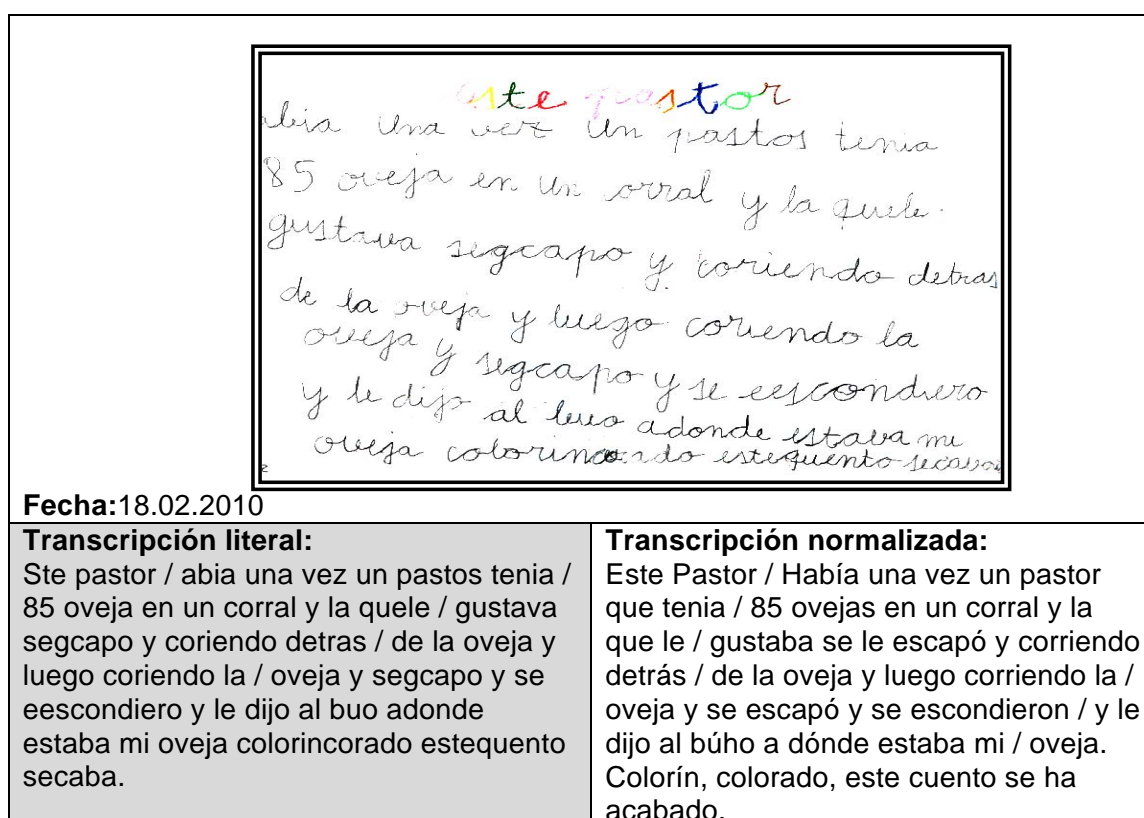 ste pastor
abia una vez un pastos tenia
85 oveja en un corral y la quele
gustava segcapo y coriendo detras
de la oveja y luego coriendo la
oveja y segcapo y se eescondiero
y le dijo al buo adonde estava mi
oveja estequento
Fecha:18.02.2010
Transcripción literal:
Ste pastor / abia una vez un pastos tenia /
85 oveja en un corral y la quele / gustava
segcapo y coriendo detras / de la oveja y
luego coriendo la / oveja y segcapo y se
eescondiero y le dijo al buo adonde
estaba mi oveja colorincorado estequento
secaba.
Transcripción normalizada:
Este Pastor / Había una vez un pastor
que tenia / 85 ovejas en un corral y la
que le / gustaba se le escapó y corriendo
detrás / de la oveja y luego corriendo la /
oveja y se escapó y se escondieron / y le
dijo al búho a dónde estaba mi / oveja.
Colorín, colorado, este cuento se ha
acabado.